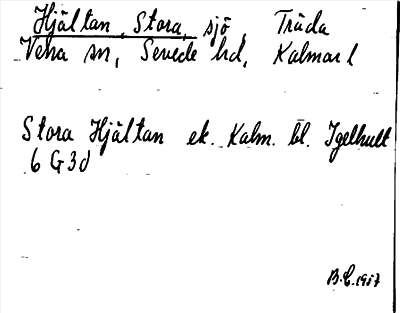 Hjältan, Stora, sjö, Träda
Vena sn, Sevede hd, Kalmar l
Stora Hjältan ek. Kalm. bl. Igelhult
6 G 3d
B.E. 1957